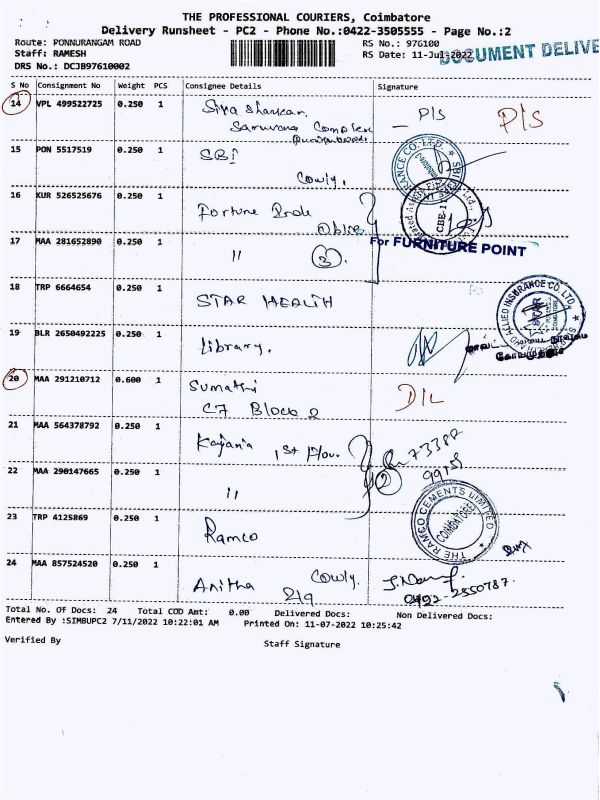 THE PROFESSIONAL COURIERS, Coimbatore
Delivery Runsheet - PC2 - Phone No.:0422-3505555 - Page No.:2
Route: PONNURANGAM ROAD RS No.: 976100
Staff: RAMESH RS Date: 11-Jul-2022 DOCUMENT DELIVE
DRS No.: DCJB97610002
S No Consignment No Weight PCS Consignee Details Signature
14 VPL 499522725 0.250 1 Siva Shankar P/S P/S
Saravana Complex
15 PON 5517519 0.250 1 SBI
Cowly.
16 KUR 526525676 0.250 1 Fortune
For FURNITURE POINT
17 MAA 281652890 0.250 1 11 3
CBE-1
18 TRP 6664654 0.250 1 STAR HEALTH
STAR HEALTH AND ALLIED INSURANCE CO. LTD.
19 BLR 2650492225 0.250 1 Library.
கோயமுத்தூர்
20 MAA 291210712 0.600 1 Sumathi D/L
C7 Block 2
21 MAA 564378792 0.250 1 1st Floor 73387
22 MAA 290147665 0.250 1 11 2
23 TRP 4125869 0.250 1 Ramco
THE RAMCO CEMENTS LIMITED
COIMBATORE
24 MAA 857524520 0.250 1 Anitha Cowly.
219 0422-2550787.
Total No. Of Docs: 24 Total COD Amt: 0.00 Delivered Docs: Non Delivered Docs:
Entered By :SIMBUPC2 7/11/2022 10:22:01 AM Printed On: 11-07-2022 10:25:42
Verified By Staff Signature